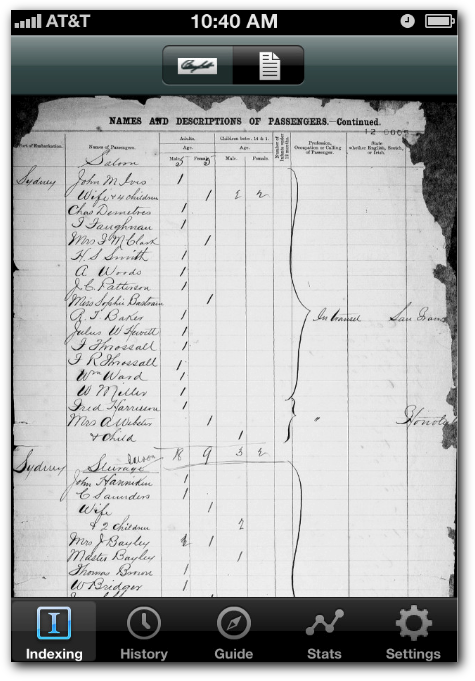 AT&T 10:40 AM
NAMES AND DESCRIPTIONS OF PASSENGERS.—Continued.
Port of Embarkation. Names of Passengers. Adults. Age. Male. Female. Children betw. 14 & 1. Age. Male. Female. Number of Infants under 12 months. Profession, Occupation or Calling of Passenger. State whether English, Scotch, or Irish.
Saloon
Sydney John M Ivis 1
Wife & 4 children 1 2 2
Chas Demetres 1
T Faughnan 1
Mrs J M Clark 1
H S Smith 1
A Woods 1
J C Patterson 1
Miss Sophie Bastrain 1
A T Baker 1 In transit San Fran
Julus W Hewitt 1
T Throssall 1
T R Throssall 1
Wm Ward 1
W Meller 1
Fred Harrison 1
Mrs A Webster 1 " Honolu
& Child 1
Sydney Steerage
John Hanniken 1
C Saunders 1
Wife 1
& 2 children 2
Mrs J Bayley 1
Master Bayley 1
Thomas Brown 1
W Bridger 1
Indexing History Guide Stats Settings